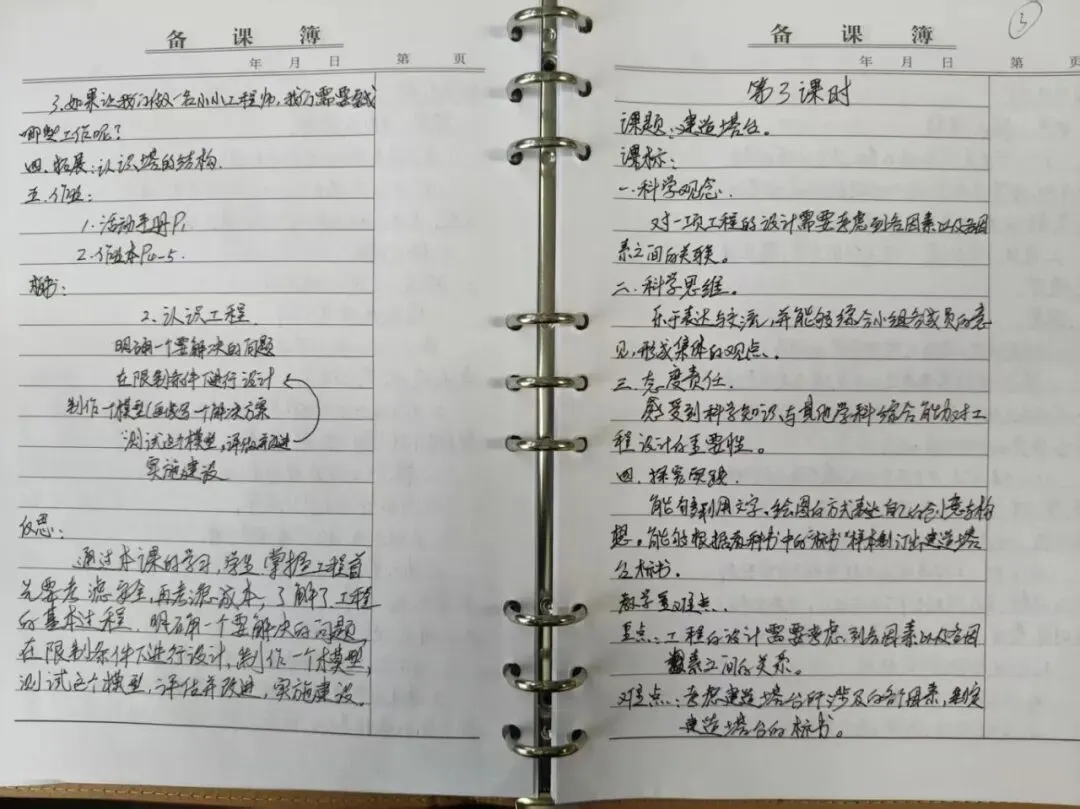 备课簿
年 月 日 第 页
3.如果让我们做一名小小工程师，我们需要做
哪些工作呢？
四、拓展：认识塔的结构.
五、作业：
1.活动手册P1
2.作业本P4-5.
板书：
2.认识工程.
明确一个要解决的问题
在限制条件下进行设计
制作一个模型 一个解决方案
测试这个模型，评估并改进
实施建设
反思：
通过本课的学习，学生掌握工程首
先要考虑安全，再考虑成本，了解了工程
的基本过程.明确一个要解决的问题
在限制条件下进行设计，制作一个模型，
测试这个模型，评估并改进，实施建设。
3
备课簿
年 月 日 第 页
第3课时
课题：建造塔台。
课标：
一.科学观念.
对一项工程的设计需要考虑到各因素以及各因
素之间的关联。
二.科学思维。
乐于表达与交流，并能够综合小组各成员的意
见，形成集体的观点.
三.态度责任.
感受到科学知识与其他学科综合能力对工
程设计的重要性。
四.探究实践.
能够利用文字、绘图的方式表达自己的创意与构
想。能够根据教科书中的“标书”样本制订出建造塔
台标书.
教学重难点：
重点：工程的设计需要考虑到各因素以及各因
素之间的关系。
难点：考虑建造塔台所涉及的各个因素，
建造塔台的标书。